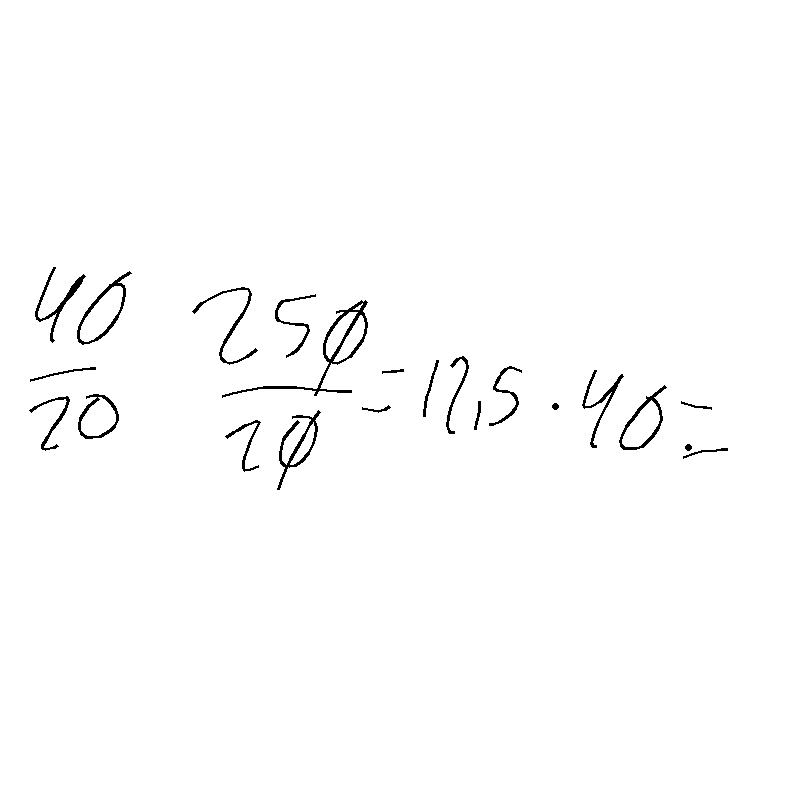 40/20 250/20 = 12,5 · 40 =